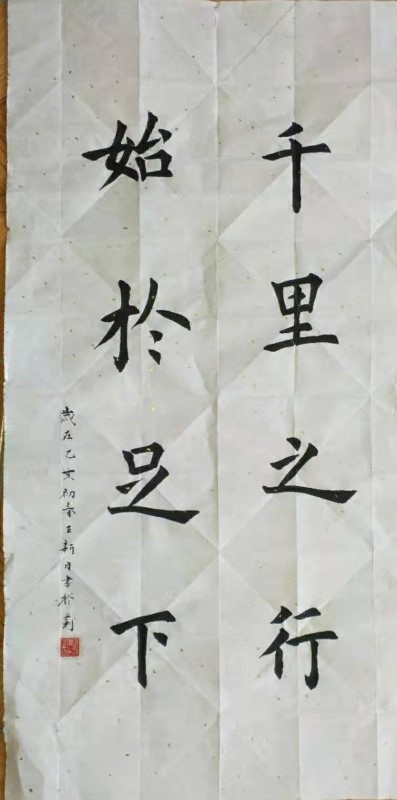 千里之行
始於足下
歲在己亥初春王新日書於荊